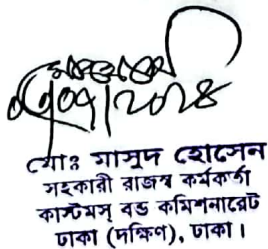 ০৭/২০২৪
মোঃ মাসুদ হোসেন
সহকারী রাজস্ব কর্মকর্তা
কাস্টমস্ বন্ড কমিশনারেট
ঢাকা (দক্ষিণ), ঢাকা।